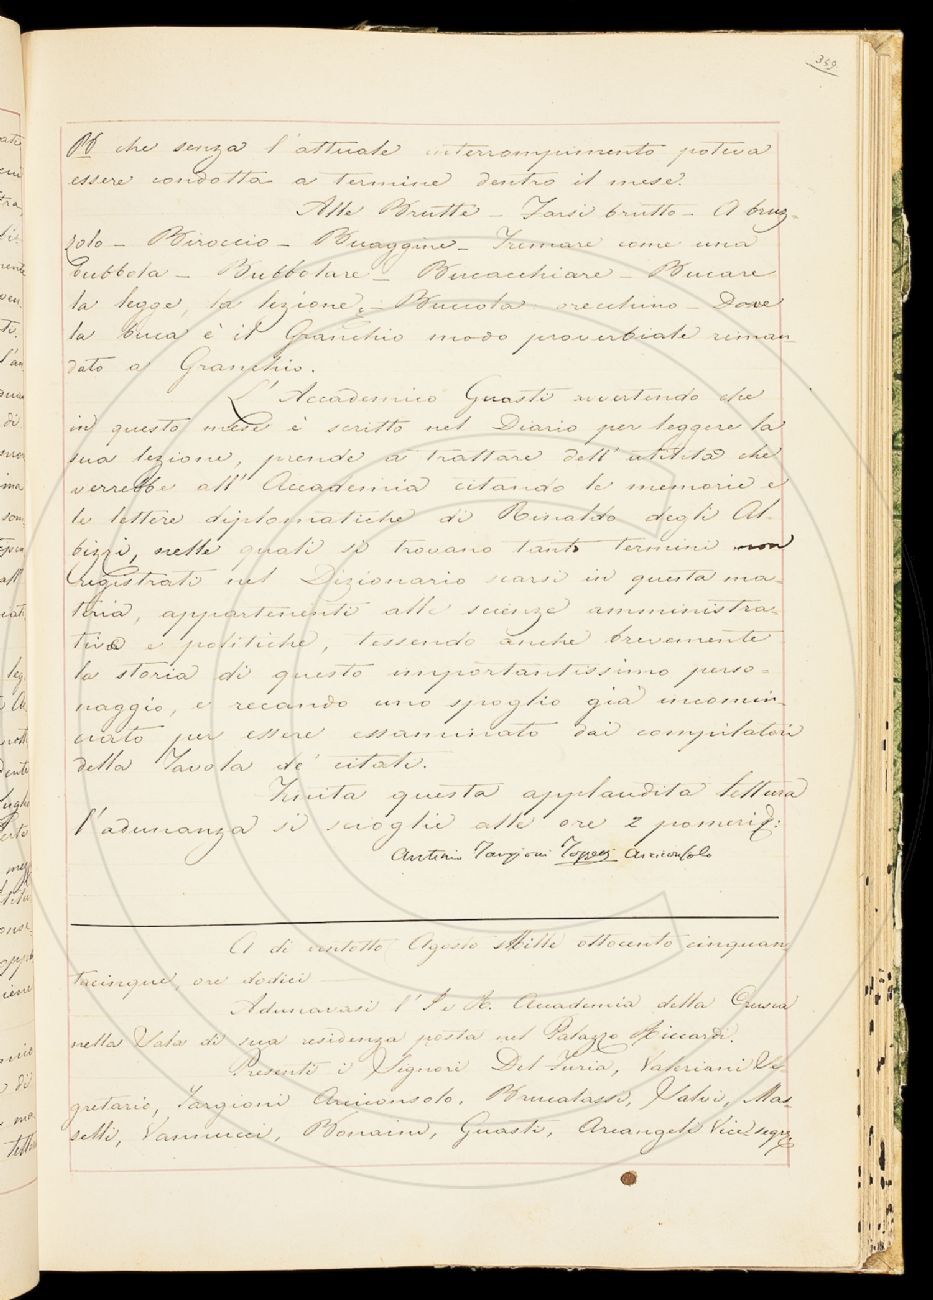 349
B che senza l'attuale interrompimento poteva
essere condotta a termine dentro il mese.
Alle Brutte – Farsi brutto – A bruz-
zolo – Biroccio – Buaggine – Tremare come una
bubbola – Bubbolare – Bucacchiare – Bucare
la legge, la lezione, – Buccola orecchino – Dove
la buca è il Granchio modo proverbiale riman
dato a Granchio.
L'Accademico Guasti avvertendo che
in questo mese è scritto nel Diario per leggere la
sua lezione, prende a trattare dell'utilità che
verrebbe all'Accademia citando le memorie e
le lettere diplomatiche di Rinaldo degli Al-
bizzi, nelle quali si trovano tanti termini non
registrati nel Dizionario scarsi in questa ma-
teria, appartenenti alle scienze amministra-
tive e politiche, tessendo anche brevemente
la storia di questo importantissimo perso-
naggio, e recando uno spoglio già incomin-
ciato per essere essaminato dai compilatori
della Tavola de' citati.
Finita questa applaudita lettura
l'adunanza si scioglie alle ore 2 pomerid:
Antonio Targioni Tozzetti Arciconsolo
A dì ventotto Agosto Mille ottocento cinquan
tacinque, ore dodici —
Adunavasi l'I e R. Accademia della Crusca
nella Sala di sua residenza posta nel Palazzo Riccardi.
Presenti i Signori Del Furia, Valeriani Se-
gretario, Targioni Arciconsolo, Brucalassi, Salvi, Mas-
selli, Vannucci, Bonaini, Guasti, Arcangeli Vice segr